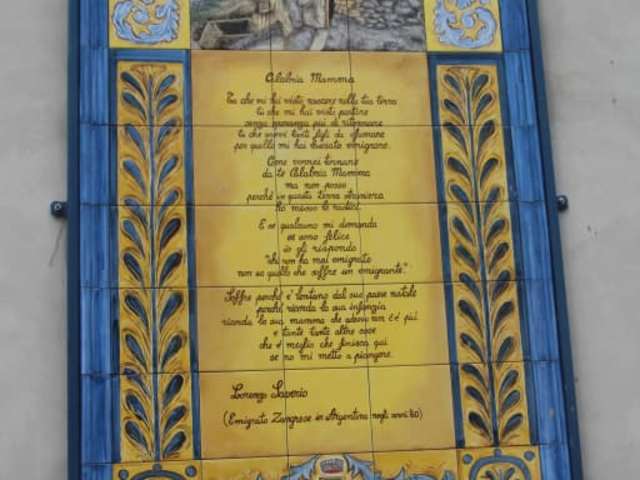 Calabria Mamma
Tu che mi hai visto nascere nella tua terra
tu che mi hai visto partire
senza speranza più di ritornare
tu che avevi tanti figli da sfamare
per quello mi hai lasciato emigrare.
Come vorrei tornare
da te Calabria Mamma
ma non posso
perché in questa terra straniera
ho messo le radici.
E se qualcuno mi domanda
se sono felice
io gli rispondo
"chi non ha mai emigrato
non sa quello che soffre un emigrante".
Soffre perché è lontano dal suo paese natale
perché ricorda la sua infanzia
ricorda la sua mamma che adesso non c'è più
e tante tante altre cose
che è meglio che finisca qui
se no mi metto a piangere.
Lorenzo Saverio
(Emigrato Zangrese in Argentina negli anni 50)